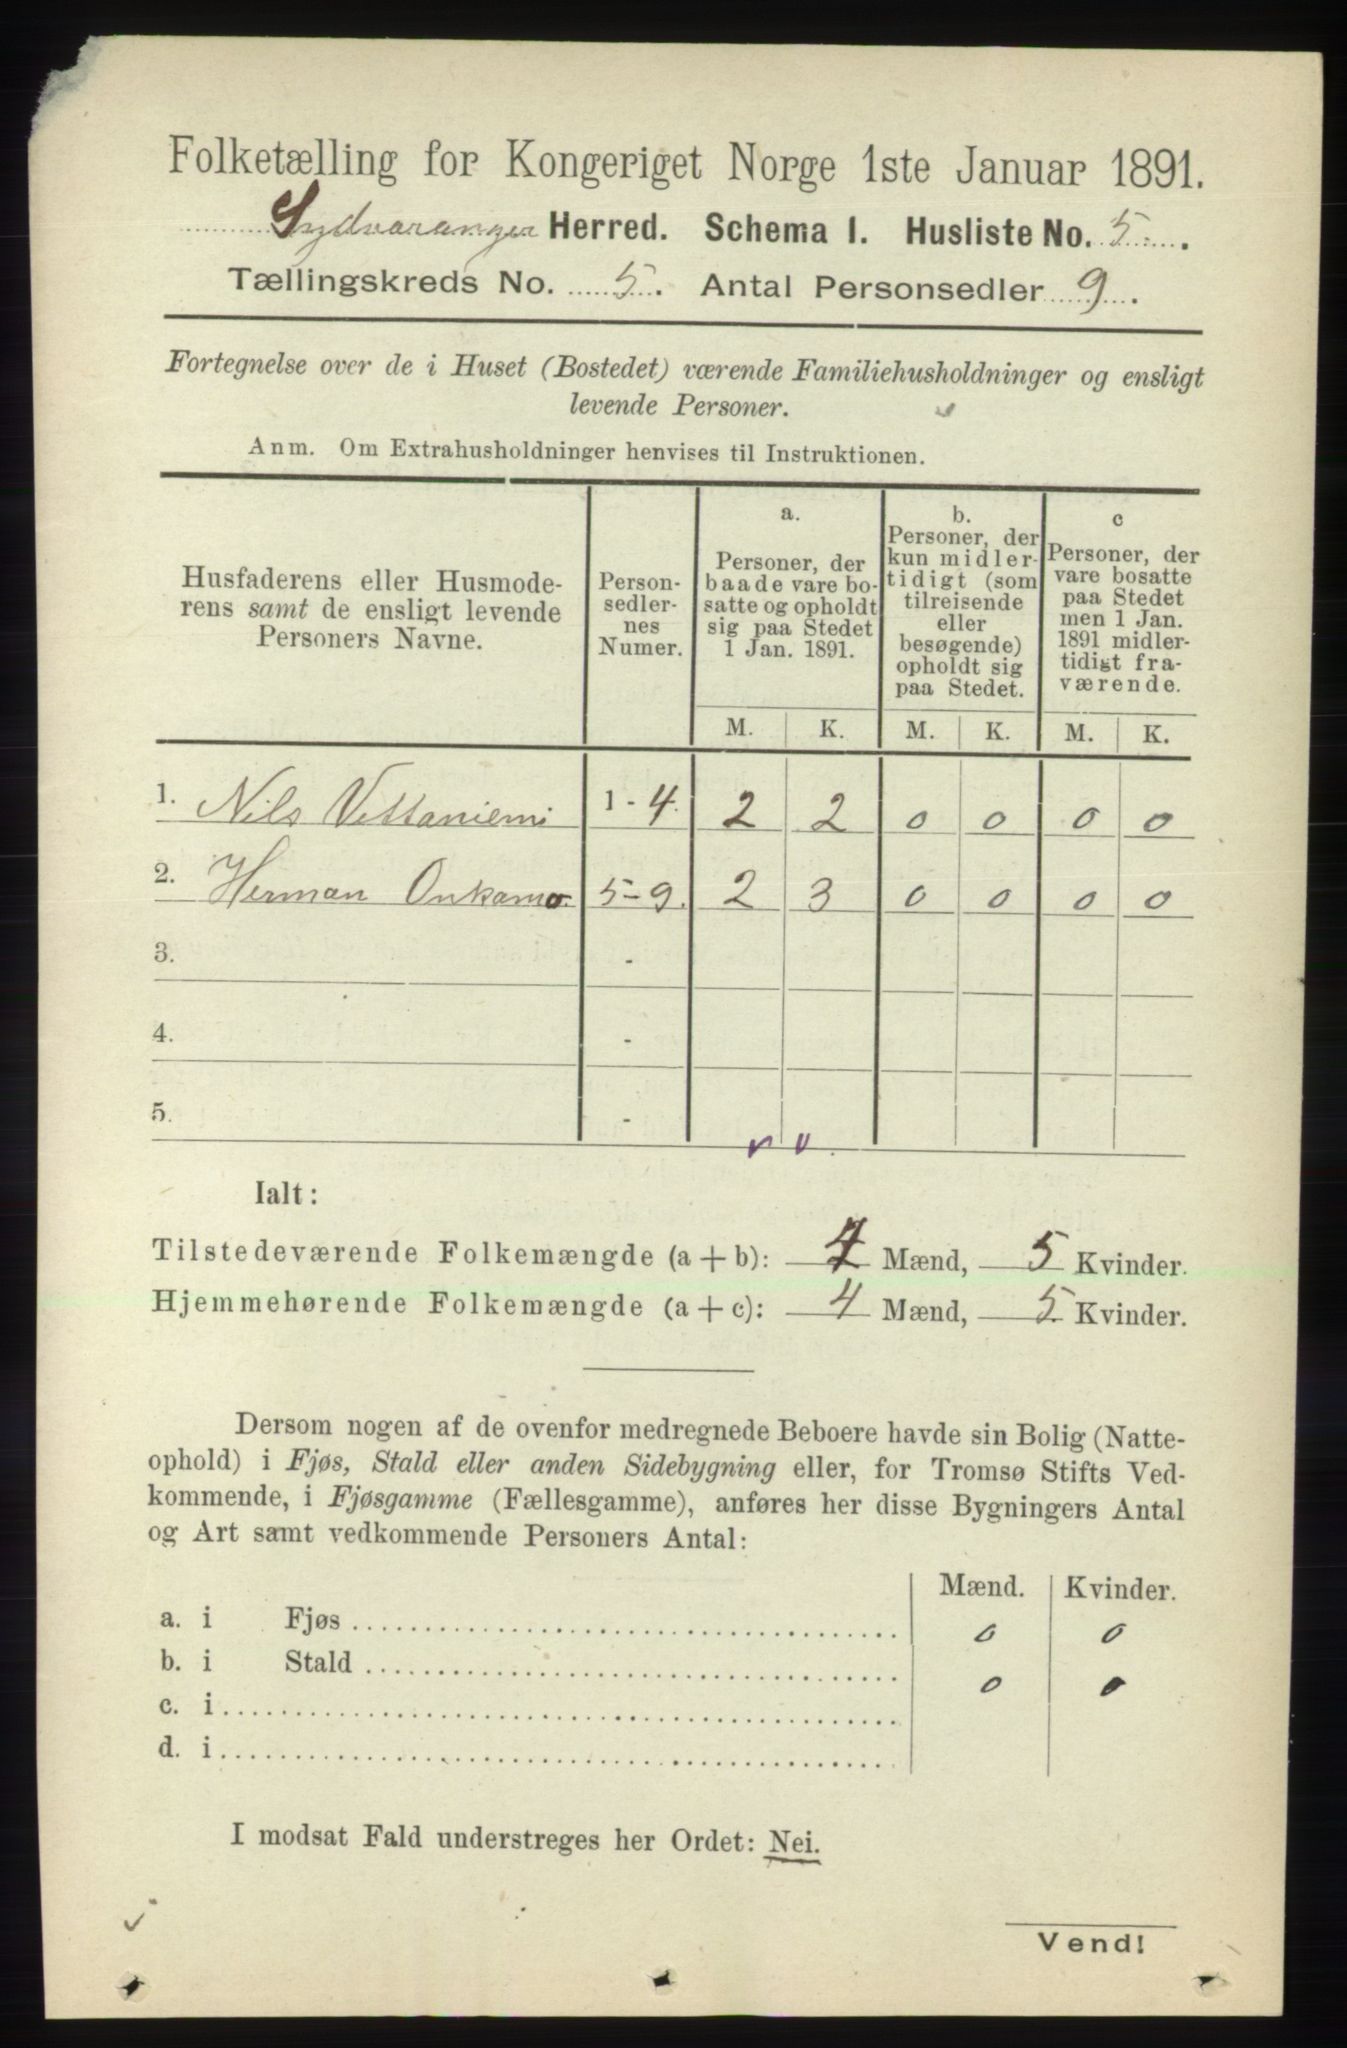 Folketælling for Kongeriget Norge 1ste Januar 1891.
Sydvaranger Herred. Schema 1. Husliste No. 5.
Tællingskreds No. 5. Antal Personsedler 9.
Fortegnelse over de i Huset (Bostedet) værende Familiehusholdninger og ensligt
levende Personer.
Anm. Om Extrahusholdninger henvises til Instruktionen.
Husfaderens eller Husmode-
rens samt de ensligt levende
Personers Navne.
Person-
sedler-
nes
Numer.
a.
Personer, der
baade vare bo-
satte og opholdt
sig paa Stedet
1 Jan. 1891.
b.
Personer, der
kun midler-
tidigt (som
tilreisende
eller
besøgende)
opholdt sig
paa Stedet.
c
Personer, der
vare bosatte
paa Stedet
men 1 Jan.
1891 midler-
tidigt fra-
værende.
M. K. M. K. M. K.
1. Nils Vittaniemi 1 - 4. 2 2 0 0 0 0
2. Herman Onkamo. 5 - 9. 2 3 0 0 0 0
3. -
4. -
5. -
Ialt:
Tilstedeværende Folkemængde (a + b): 4 Mænd, 5 Kvinder.
Hjemmehørende Folkemængde (a + c): 4 Mænd, 5 Kvinder.
Dersom nogen af de ovenfor medregnede Beboere havde sin Bolig (Natte-
ophold) i Fjøs, Stald eller anden Sidebygning eller, for Tromsø Stifts Ved-
kommende, i Fjøsgamme (Fællesgamme), anføres her disse Bygningers Antal
og Art samt vedkommende Personers Antal:
Mænd. Kvinder.
a. i Fjøs 0 0
b. i Stald 0 0
c. i
d. i
I modsat Fald understreges her Ordet: Nei.
Vend!